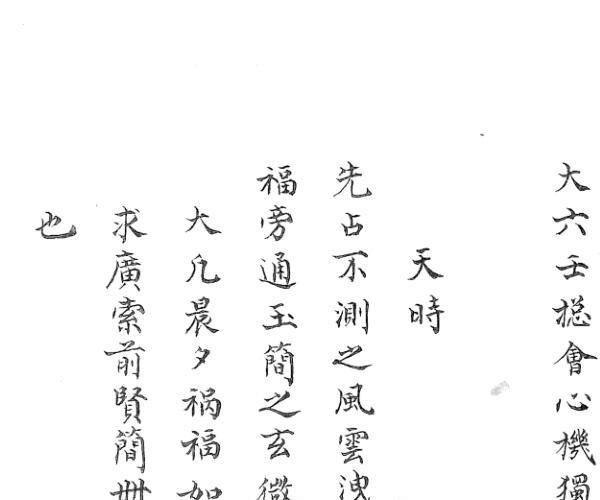 大六壬摠會心機獨
天時
先占不測之風雲洩
福旁通玉簡之玄微
大凡晨夕禍福如
求廣索前賢簡冊
也